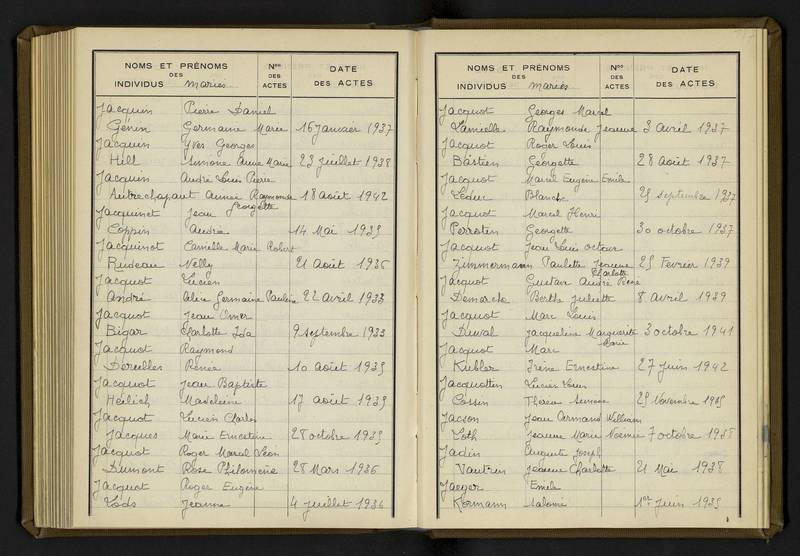 NOMS ET PRÉNOMS DES INDIVIDUS Mariés Nos DES ACTES DATE DES ACTES
Jacquin Pierre Daniel
Génin Germaine Marie 16 Janvier 1937
Jacquin Yves Georges
Hill Simone Anne Marie 23 Juillet 1938
Jacquin André Louis Pierre
Aubrechapaut Aimée Raymonde 18 août 1942
Georgette
Jacquinet Jean
Coppin Andrée 14 Mai 1935
Jacquinot Camille Marie Robert
Rudeau Nelly 21 Août 1936
Jacquot Lucien
André Aline Germaine Pauline 22 Avril 1933
Jacquot Jean Omer
Bigar Charlotte Ida 9 septembre 1933
Jacquot Raymond
Derelles Renée 10 août 1935
Jacquot Jean Baptiste
Heilich Madeleine 17 août 1935
Jacquot Lucien Charles
Jacques Marie Ernestine 28 octobre 1935
Jacquot Roger Marcel Léon
Dumont Rose Philomène 28 Mars 1936
Jacquot Roger Eugène
Lods Jeanne 4 juillet 1936
NOMS ET PRÉNOMS DES INDIVIDUS Mariés Nos DES ACTES DATE DES ACTES
Jacquot Georges Marcel
Lamielle Raymonde Jeanne 3 Avril 1937
Jacquot Roger Louis
Bastien Georgette 28 août 1937
Jacquot Marcel Eugène Emile
Leduc Blanche 25 septembre 1937
Jacquot Marcel Henri
Perrotin Georgette 30 octobre 1937
Jacquot Jean Louis octave
Zimmermann Paulette Jeanne 25 Fevrier 1939
Charlotte
Jacquot Gustav André René
Demarche Berthe Juliette 8 avril 1939
Jacquot Marc Louis
Duval Jacqueline Marguerite 3 octobre 1941
Marie
Jacquot Marc
Kubler Irène Ernestine 27 juin 1942
Jacquottin Lucien Louis
Cossin Thérèse Simone 25 Novembre 1935
Jacson Jean Armand William
Loth Jeanne Marie Noemie 7 octobre 1938
Jadin Auguste Joseph
Vautrin Jeanne Charlotte 21 Mai 1938
Jaeger Emile
Kormann Salomé 1er Juin 1935